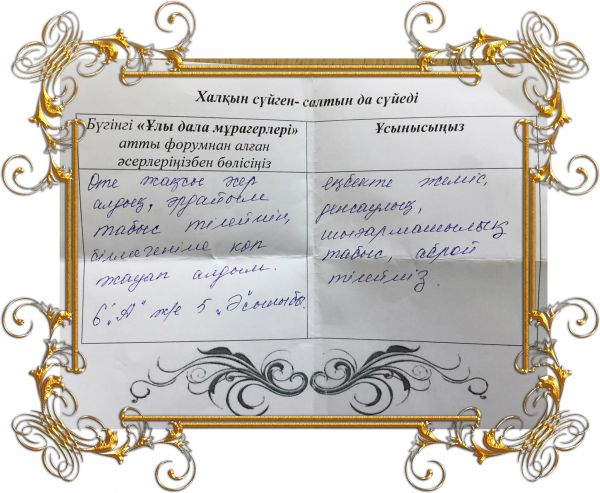 Халқын сүйген- салтын да сүйеді
Бүгінгі «Ұлы дала мұрагерлері»
атты форумнан алған
әсерлеріңізбен бөлісіңіз
Өте жақсы әсер
алдық, әрдайым
табыс тілеймін,
білмегеніме көп
жауап алдым.
6 "А" ж/е 5 „Ә" сыныбы.
Ұсынысыңыз
еңбекте жеміс,
денсаулық,
шығармашылық
табыс, абырой
тілейміз.